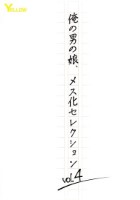 YELLOW
俺の男の娘、メス化セレクション
vol.4